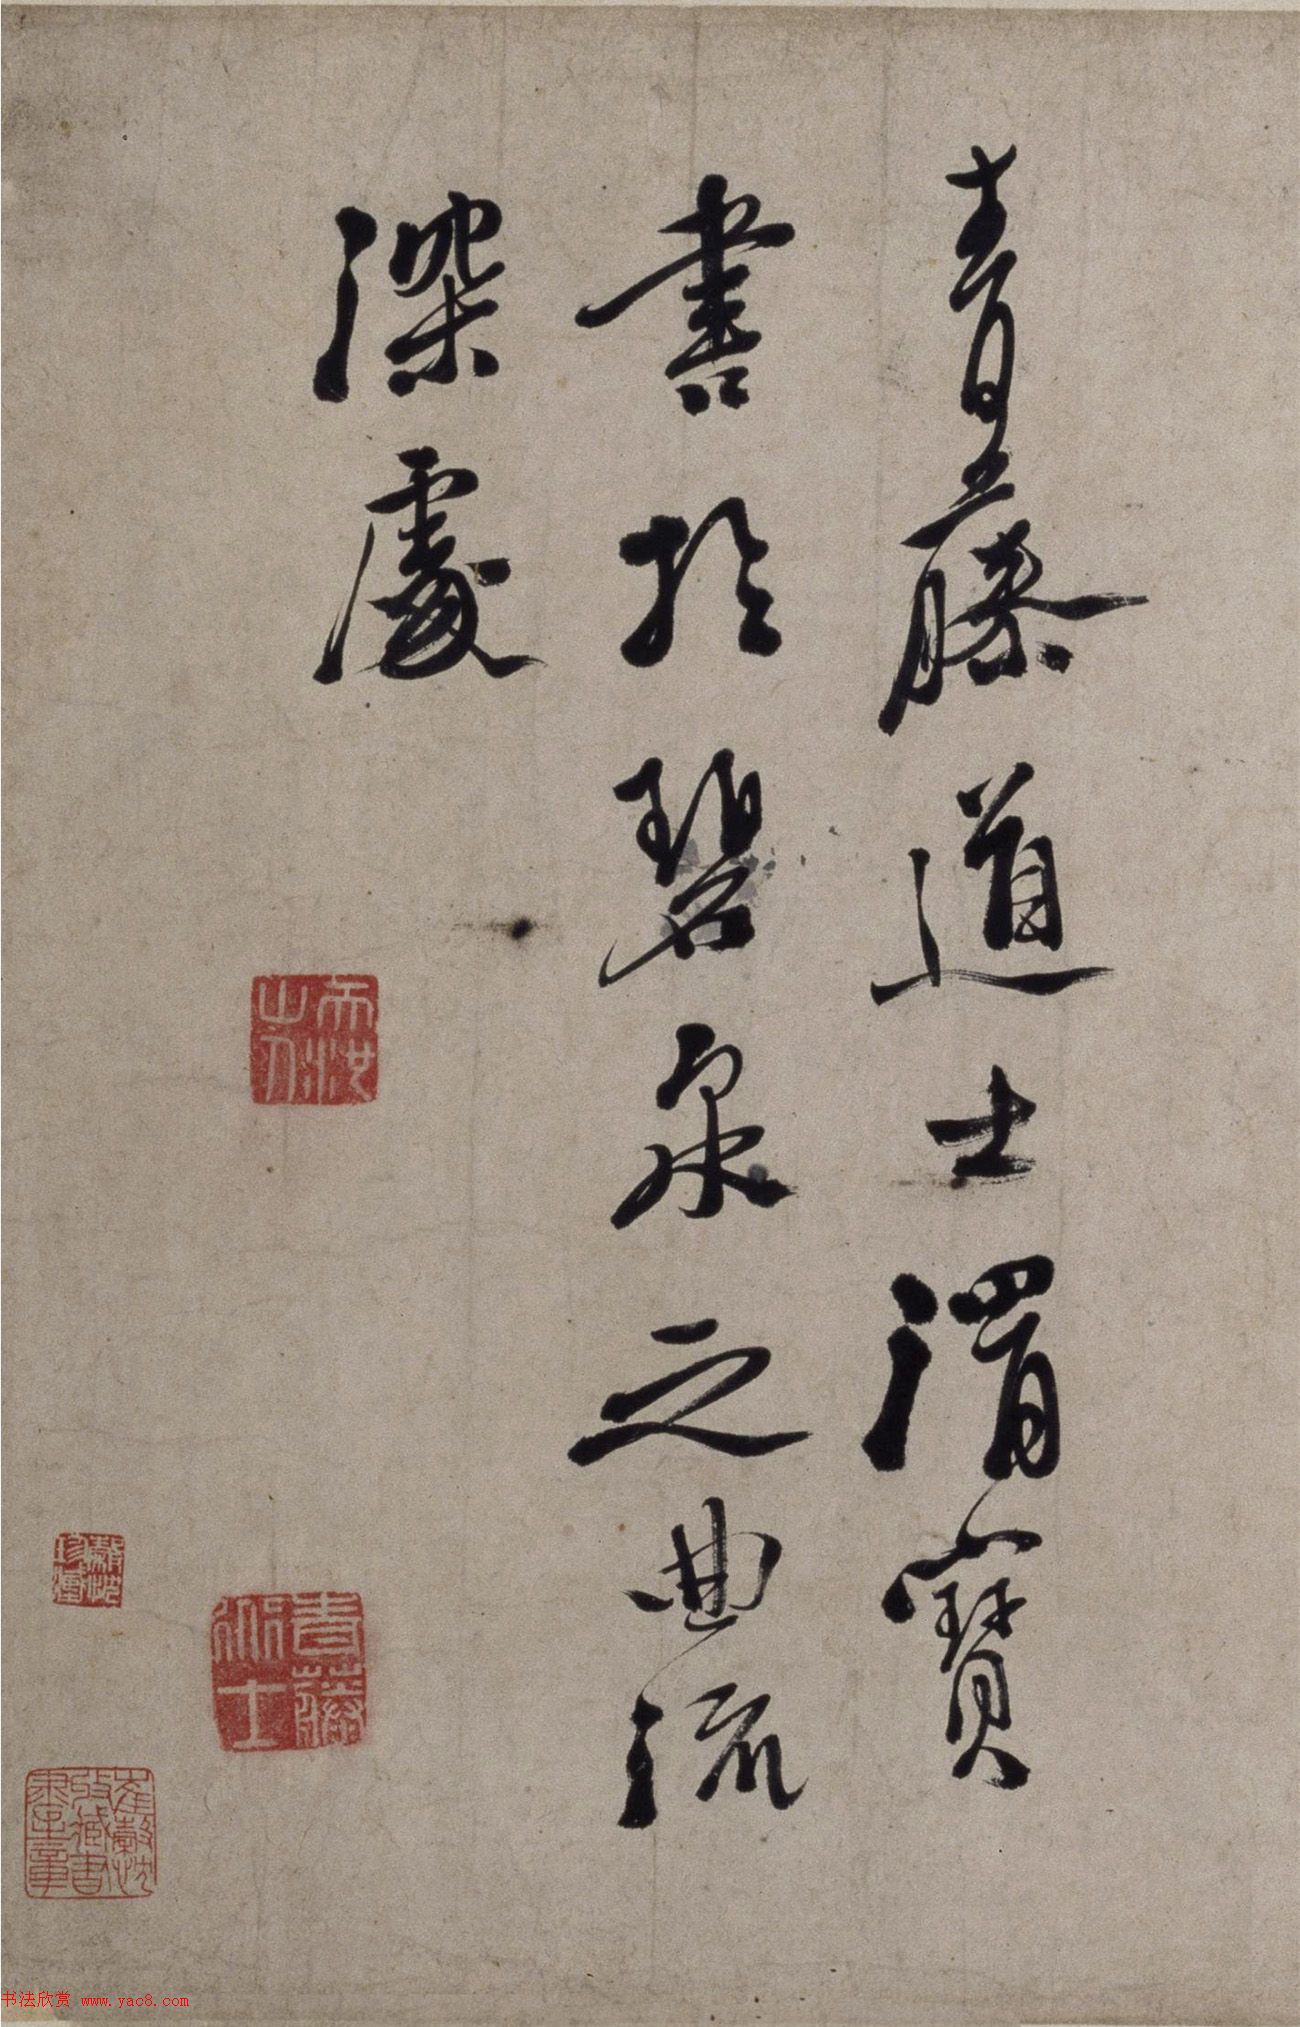 青藤道士渭寶
書於碧泉之曲流
深處
天池
山人
青藤
道士
書法欣赏 www.yac8.com